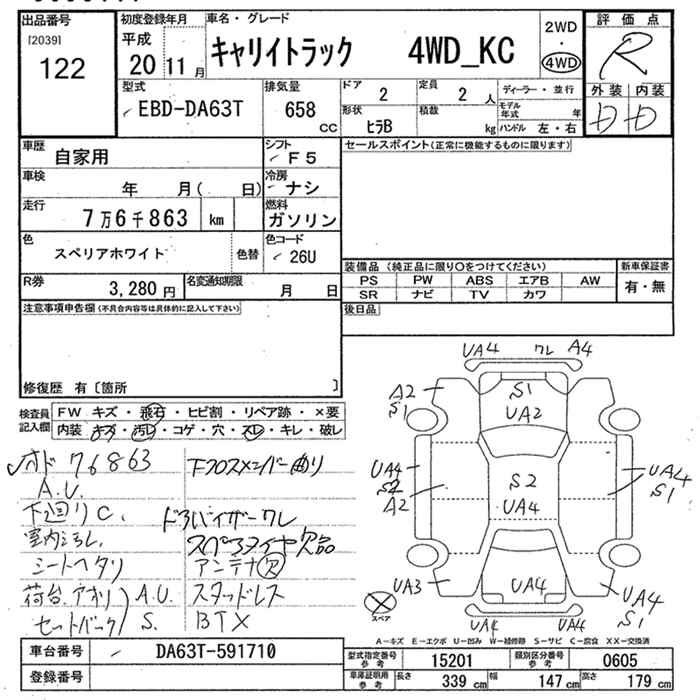 出品番号
[2039]
122
初度登録年月
平成
20 11 月
車名・グレード
キャリイトラック 4WD_KC
2WD
・
4WD
評価点
R
外装 内装
D D
型式
EBD-DA63T
排気量
658
cc
ドア
2
定員
2 人
ディーラー・並行
モデル年式 年
形状
ヒラB
積載
kg
ハンドル 左・右
車歴
自家用
シフト
F5
セールスポイント(正常に機能するものに限ります)
車検
年 月( 日)
冷房
ナシ
走行
7万6千863 km
燃料
ガソリン
色
スペリアホワイト
色替
色コード
26U
装備品 (純正品に限り○をつけてください)
PS PW ABS エアB AW
SR ナビ TV カワ
新車保証書
有・無
R券
3,280 円
名変通知期限
月 日
後日品
注意事項申告欄(不具合内容等は具体的に記入して下さい)
修復歴 有〔箇所 〕
検査員記入欄
FW キズ・飛石・ヒビ割・リペア跡・×要
内装 キズ・汚レ・コゲ・穴・スレ・キレ・破レ
オド 76863
A.U.
下回りC.
室内ヨゴレ.
シートヘタリ
荷台.アオリ A.U.
セットバック S.
下フロスメンバー曲り
ドラバイザーワレ
スペアタイヤ欠品
アンテナ欠
スタッドレス
BTX
UA4 ワレ A4
A2
S1
S1
UA2
UA4
S2
A2
S2
UA4
UA4
S1
UA3
UA4
UA4
S1
UA4 UA4
スペア
A-キズ E-エクボ U-凹み W-補修跡 S-サビ C-腐食 XX-交換済
車台番号
DA63T-591710
登録番号
型式指定番号
参考
15201
類別区分番号
参考
0605
車庫証明用
参考
長さ
339 cm
幅
147 cm
高さ
179 cm